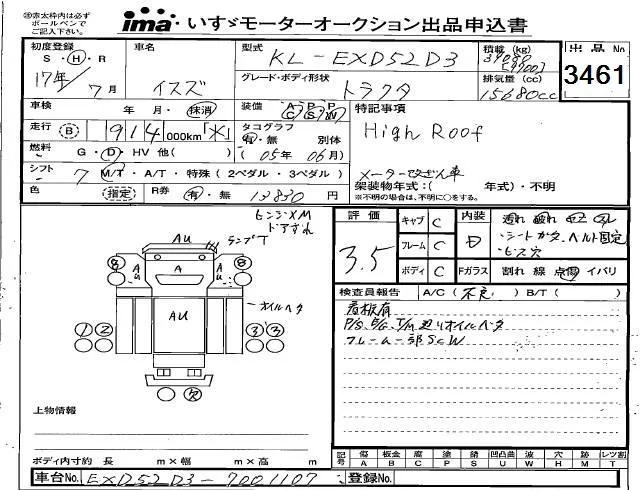 ※赤太枠内は必ず
ボールペンで
ご記入下さい。
ima いすゞモーターオークション出品申込書
初度登録 S・H・R 17年 7月
車名 イスズ
型式 KL-EXD52D3
積載 (kg)
出品 No
3461
グレード・ボディ形状 トラクタ
排気量 (cc) 15680cc
車検 年 月・抹消
装備 A C P S P W
特記事項
High Roof
走行 B 914 000km
タコグラフ 有・無 別体
(05年 06月)
燃料 G・D・HV 他( )
シフト 7 M/T・A/T・特殊(2ペダル・3ペダル)
メーター改ざん車
架装物年式:( 年式)・不明
※不明の場合は、不明に○をする。
色 (指定) R券 有・無 13830円
評価 3.5
キャブ C
フレーム C
ボディ C
内装 D
・シートガタ、ベルト固定
ビス穴
Fガラス 割れ 線 点傷 イバリ
AU
A
AU
オイルベタ
検査員報告 A/C(不良) B/T( )
看板有
フレーム一部SCW
上物情報
ボディ内寸約 長 m×幅 m×高 m
記号 傷A 板金B 腐C 塗P 錆S 凹凸曲U 波W 穴H 跡M レンズ割T
車台No. EXD52D3-7001107
登録No.